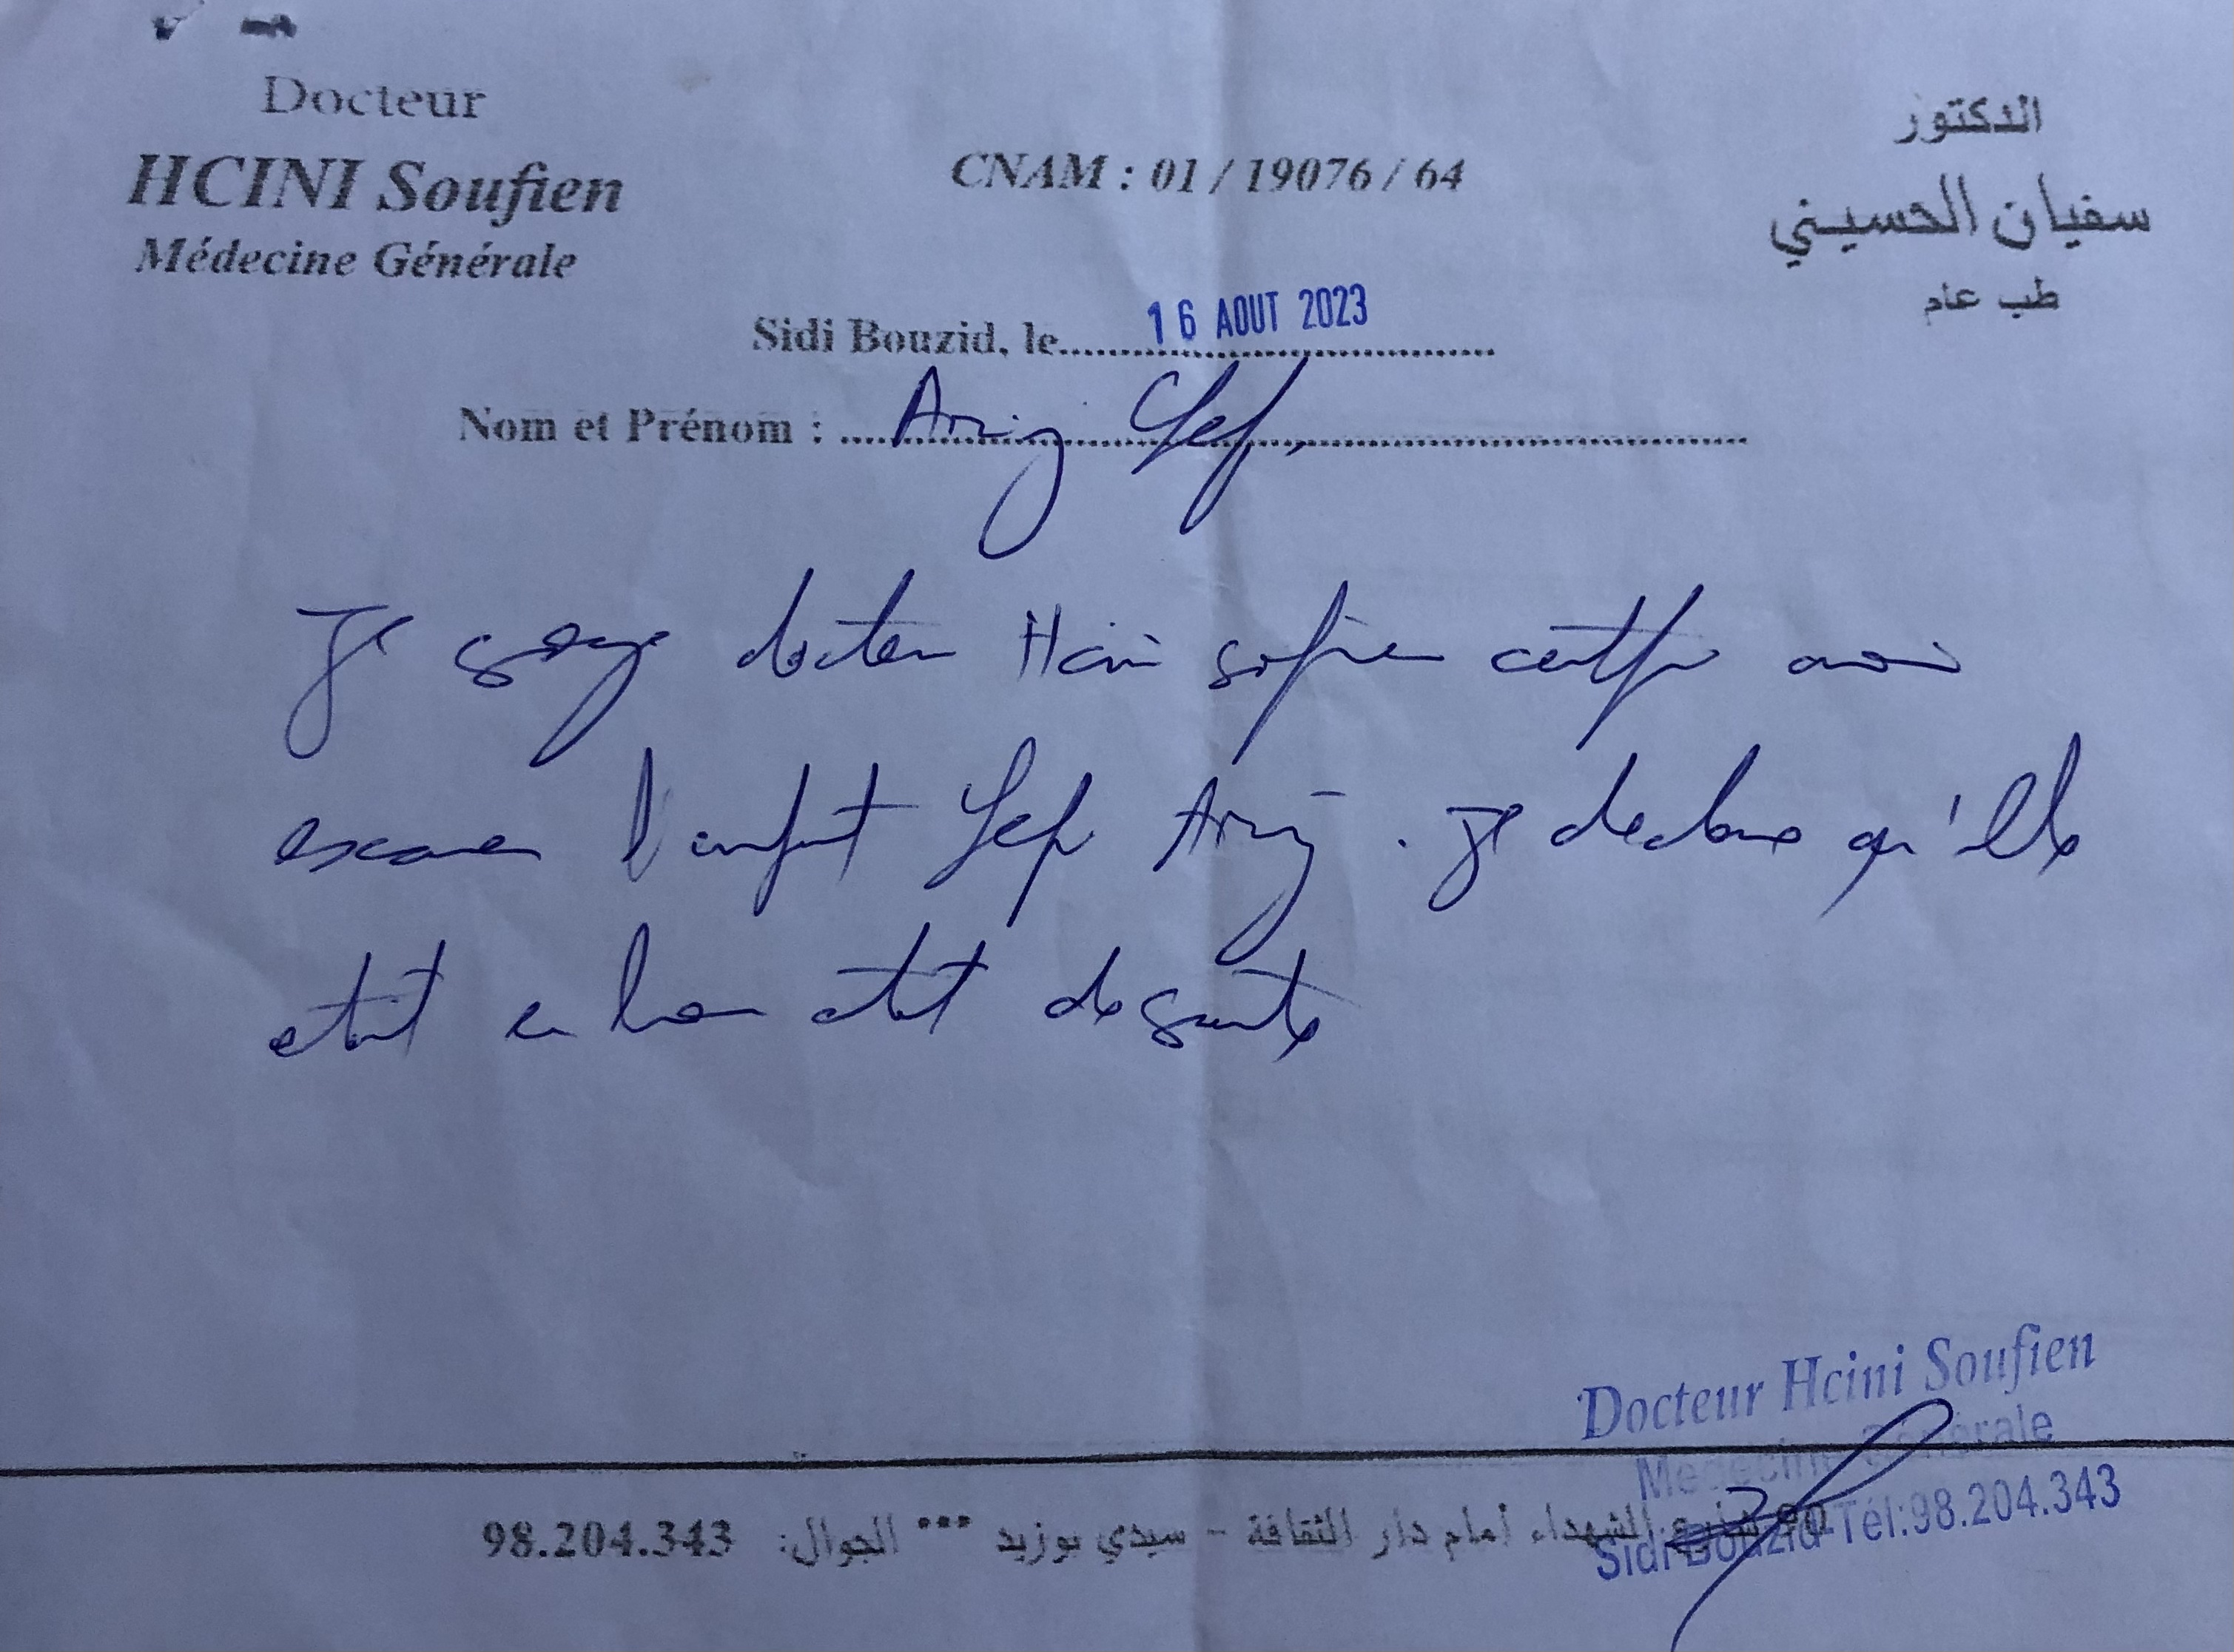 Docteur
HCINI Soufien
Médecine Générale
CNAM : 01 / 19076 / 64
الدكتور
سفيان الحسيني
طب عام
Sidi Bouzid, le 16 AOUT 2023
Nom et Prénom : Arij
Je docteur Hcini sofien certifie avoir
examiner l'enfant Arij. Je declare qu'elle
etait en bon etat de sante
Docteur Hcini Soufien
Medecine Générale
Sidi Bouzid-Tél:98.204.343
شارع الشهداء أمام دار الثقافة - سيدي بوزيد *** الجوال: 98.204.343